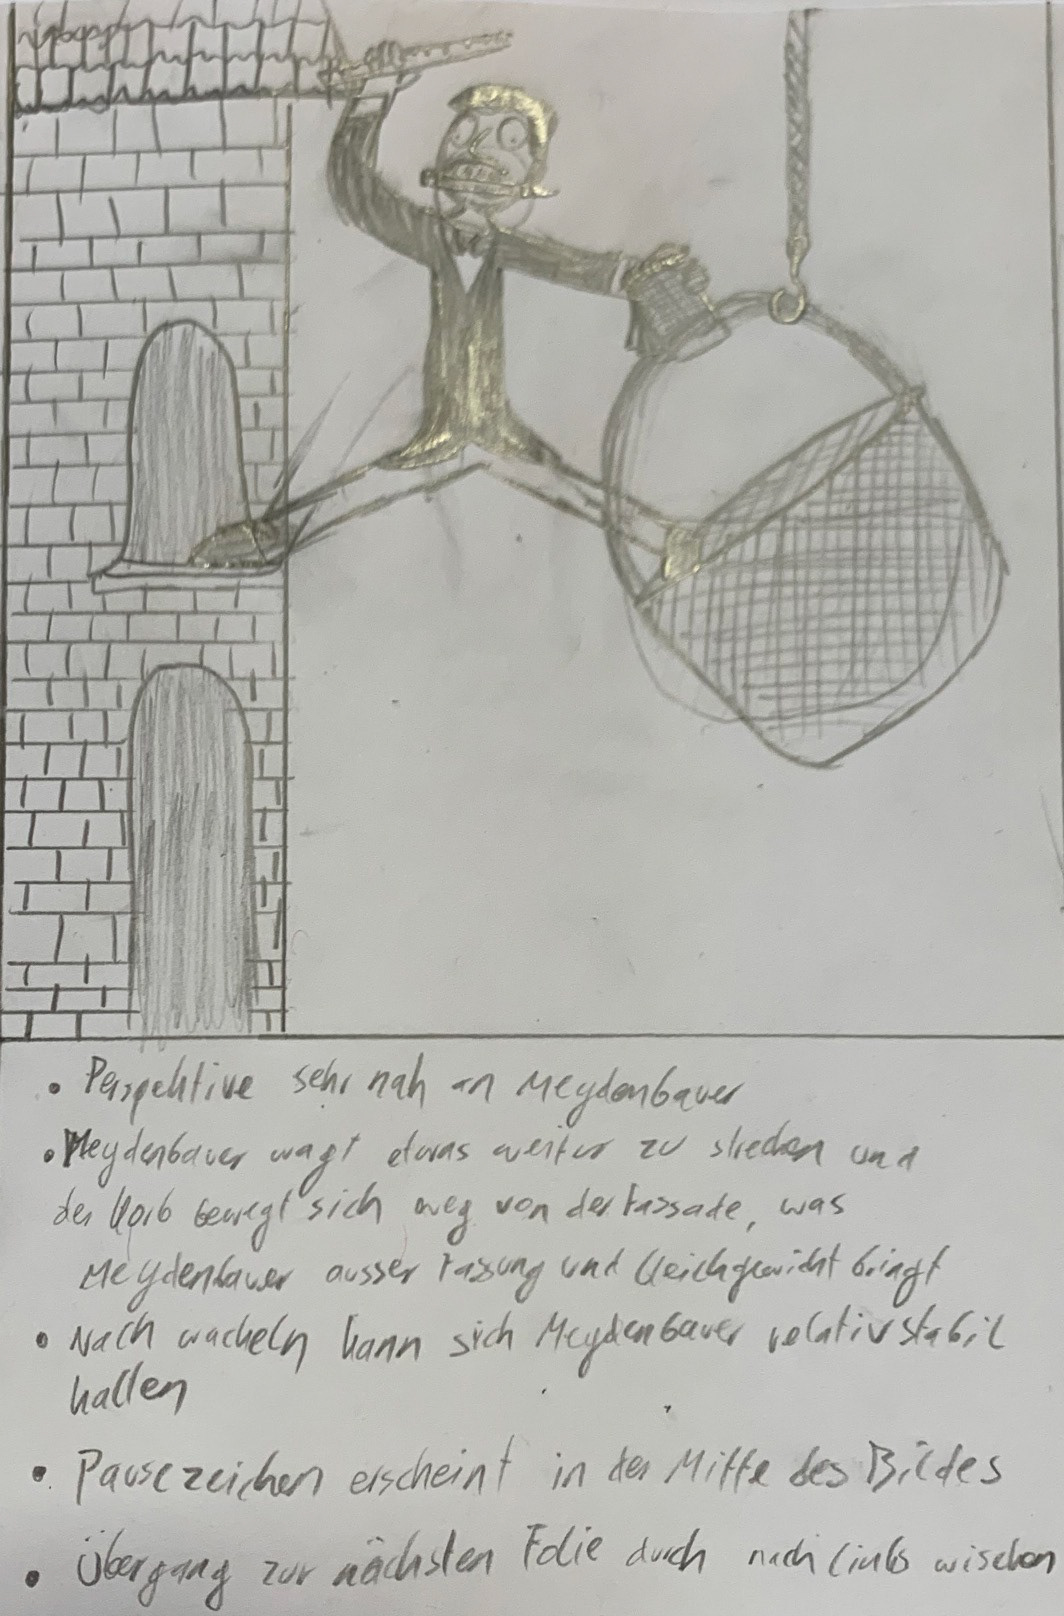 • Perspektive sehr nah an Meydenbauer
• Meydenbauer wagt etwas weiter zu strecken und
der Korb bewegt sich weg von der Fassade, was
Meydenbauer ausser Fassung und Gleichgewicht bringt
• Nach wackeln kann sich Meydenbauer relativ stabil
halten
• Pausezeichen erscheint in der Mitte des Bildes
• Übergang zur nächsten Folie durch nach links wischen